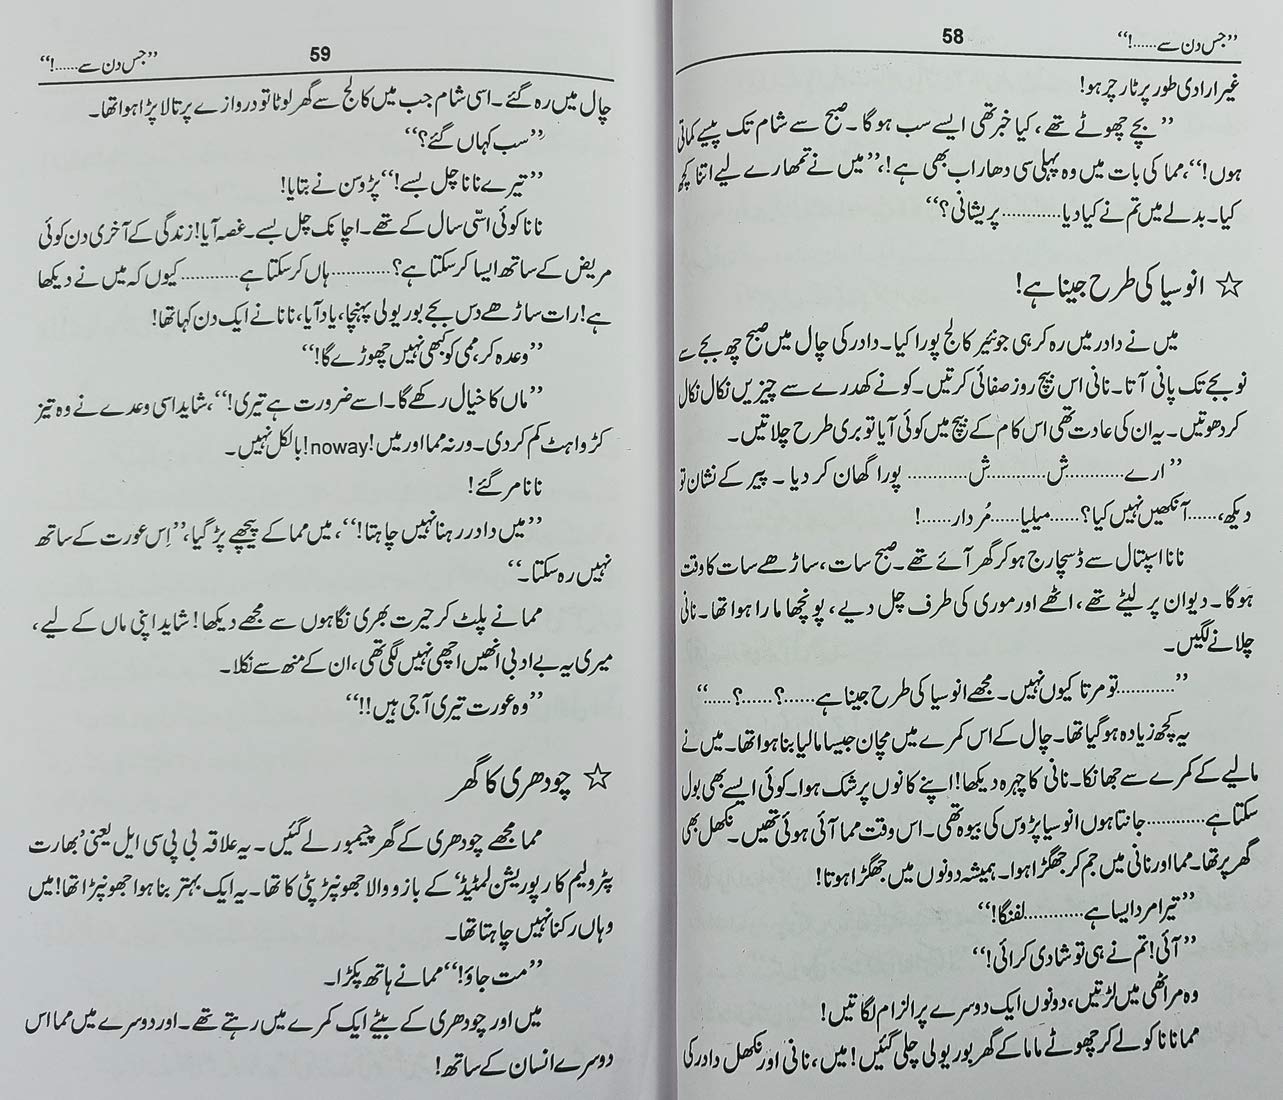 ”جس دن سے......!“
58
غیر ارادی طور پر ٹارچر ہو!
”بچے چھوٹے تھے، کیا خبر تھی ایسے سب ہوگا۔ صبح سے شام تک پیسے کماتی
ہوں!“، مما کی بات میں وہ پہلی سی دھار اب بھی ہے!، ”میں نے تمھارے لیے اتنا کچھ
کیا۔ بدلے میں تم نے کیا دیا............پریشانی؟“
☆ انوسیا کی طرح جینا ہے!
میں نے دادر میں رہ کر ہی جونیئر کالج پورا کیا۔ دادر کی چال میں صبح چھ بجے سے
نو بجے تک پانی آتا۔ نانی اس بیچ روز صفائی کرتیں۔ کونے کھدرے سے چیزیں نکال نکال
کر دھوتیں۔ یہ ان کی عادت تھی اس کام کے بیچ میں کوئی آیا تو بری طرح چلاتیں۔
”ارے............ش............ش............ پورا گھان کر دیا۔ پیر کے نشان تو
دیکھ،......آنکھیں نہیں کیا؟......میلیا......مُردار......!
نانا اسپتال سے ڈسچارج ہو کر گھر آئے تھے۔ صبح سات، ساڑھے سات کا وقت
ہوگا۔ دیوان پر لیٹے تھے، اٹھے اور موری کی طرف چل دیے، پونچھا مارا ہوا تھا۔ نانی
چلانے لگیں۔
”............تو مرتا کیوں نہیں۔ مجھے انوسیا کی طرح جینا ہے......؟......؟......“
یہ کچھ زیادہ ہو گیا تھا۔ چال کے اس کمرے میں مچان جیسا مالیا بنا ہوا تھا۔ میں نے
مالیے کے کمرے سے جھانکا۔ نانی کا چہرہ دیکھا! اپنے کانوں پر شک ہوا۔ کوئی ایسے بھی بول
سکتا ہے............جانتا ہوں انوسیا پڑوس کی بیوہ تھی۔ اس وقت مما آئی ہوئی تھیں۔ نکھل بھی
گھر پر تھا۔ مما اور نانی میں جم کر جھگڑا ہوا۔ ہمیشہ دونوں میں جھگڑا ہوتا!
”تیرا مرد ایسا ہے............لفنگا!“
”آئی! تم نے ہی تو شادی کرائی!“
وہ مراٹھی میں لڑتیں، دونوں ایک دوسرے پر الزام لگاتیں!
مما نانا کو لے کر چھوٹے ماما کے گھر بوریولی چلی گئیں! میں، نانی اور نکھل دادر کی
59
”جس دن سے......!“
چال میں رہ گئے۔ اسی شام جب میں کالج سے گھر لوٹا تو دروازے پر تالا پڑا ہوا تھا۔
”سب کہاں گئے؟“
”تیرے نانا چل بسے!“ پڑوسن نے بتایا!
نانا کوئی اسّی سال کے تھے۔ اچانک چل بسے۔ غصہ آیا! زندگی کے آخری دن کوئی
مریض کے ساتھ ایسا کر سکتا ہے؟............ہاں کر سکتا ہے............کیوں کہ میں نے دیکھا
ہے! رات ساڑھے دس بجے بوریولی پہنچا، یاد آیا، نانا نے ایک دن کہا تھا!
”وعدہ کر، ممی کو کبھی نہیں چھوڑے گا!“
”ماں کا خیال رکھے گا۔ اسے ضرورت ہے تیری!“، شاید اسی وعدے نے وہ تیز
کڑواہٹ کم کر دی۔ ورنہ مما اور میں! noway! بالکل نہیں۔
نانا مر گئے!
”میں دادر رہنا نہیں چاہتا!“، میں مما کے پیچھے پڑ گیا، ”اِس عورت کے ساتھ
نہیں رہ سکتا۔“
مما نے پلٹ کر حیرت بھری نگاہوں سے مجھے دیکھا! شاید اپنی ماں کے لیے،
میری یہ بے ادبی انھیں اچھی نہیں لگی تھی، ان کے منھ سے نکلا۔
”وہ عورت تیری آجی ہیں!!“
☆ چودھری کا گھر
مما مجھے چودھری کے گھر چیمبور لے گئیں۔ یہ علاقہ بی پی سی ایل یعنی ’بھارت
پٹرولیم کارپوریشن لمٹیڈ‘ کے بازو والا جھونپڑ پٹی کا تھا۔ یہ ایک بہتر بنا ہوا جھونپڑا تھا! میں
وہاں رکنا نہیں چاہتا تھا۔
”مت جاؤ!“ مما نے ہاتھ پکڑا۔
میں اور چودھری کے بیٹے ایک کمرے میں رہتے تھے۔ اور دوسرے میں مما اس
دوسرے انسان کے ساتھ!